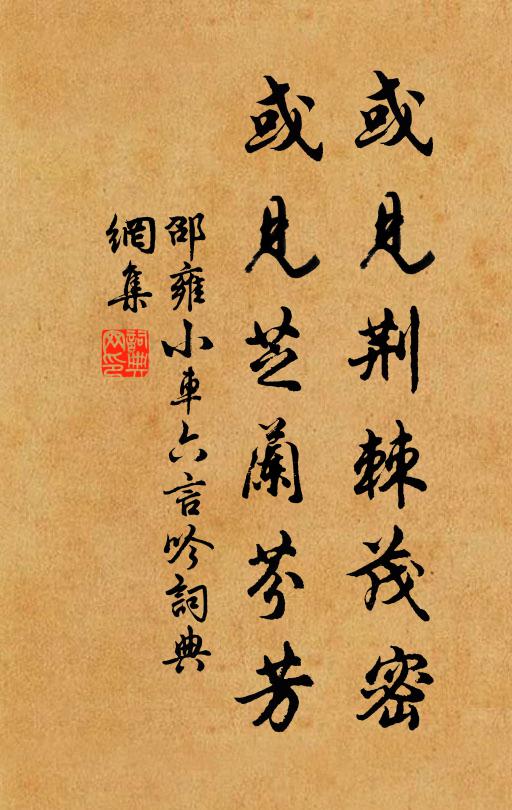 或見荆棘茂密
或見芝蘭芬芳
邵雍小車六言吟詞典
網集
詞典
網印